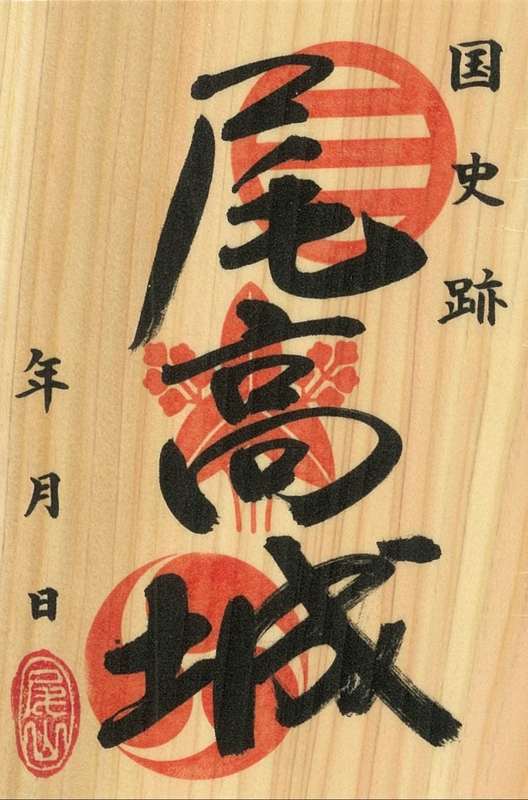 国史跡
尾高城
年月日
尾山